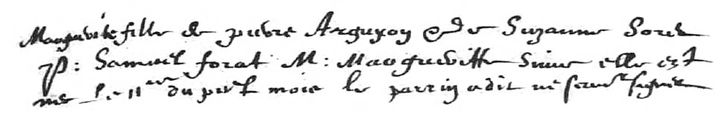 Marguerite fille de pierre Arguyon & de Suzanne Sorel
P: Samuel forat M: Margueritte elle est
nee le 11e du pnt mois le parrin a dit ne scavr signer